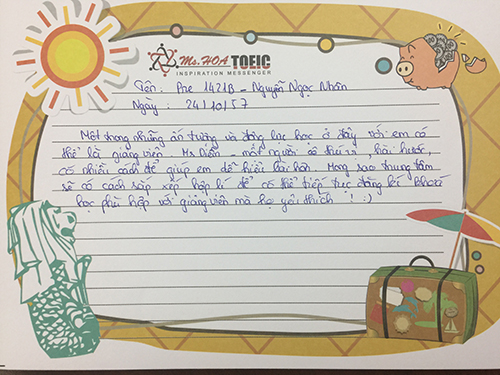 Ms. HOA TOEIC
INSPIRATION MESSENGER
Tên : Pre 1421B - Nguyễn Ngọc Nhân
Ngày : 24/10/57
Một trong những ấn tượng và động lực học ở đây với em có
thể là giảng viên. Ms Diễn - một người cô thú vị, hài hước,
có nhiều cách để giúp em dễ hiểu bài hơn. Mong sao trung tâm
sẽ có cách sắp xếp hợp lí để có thể tiếp tục đăng kí khoá
học phù hợp với giảng viên mà họ yêu thích ! :)